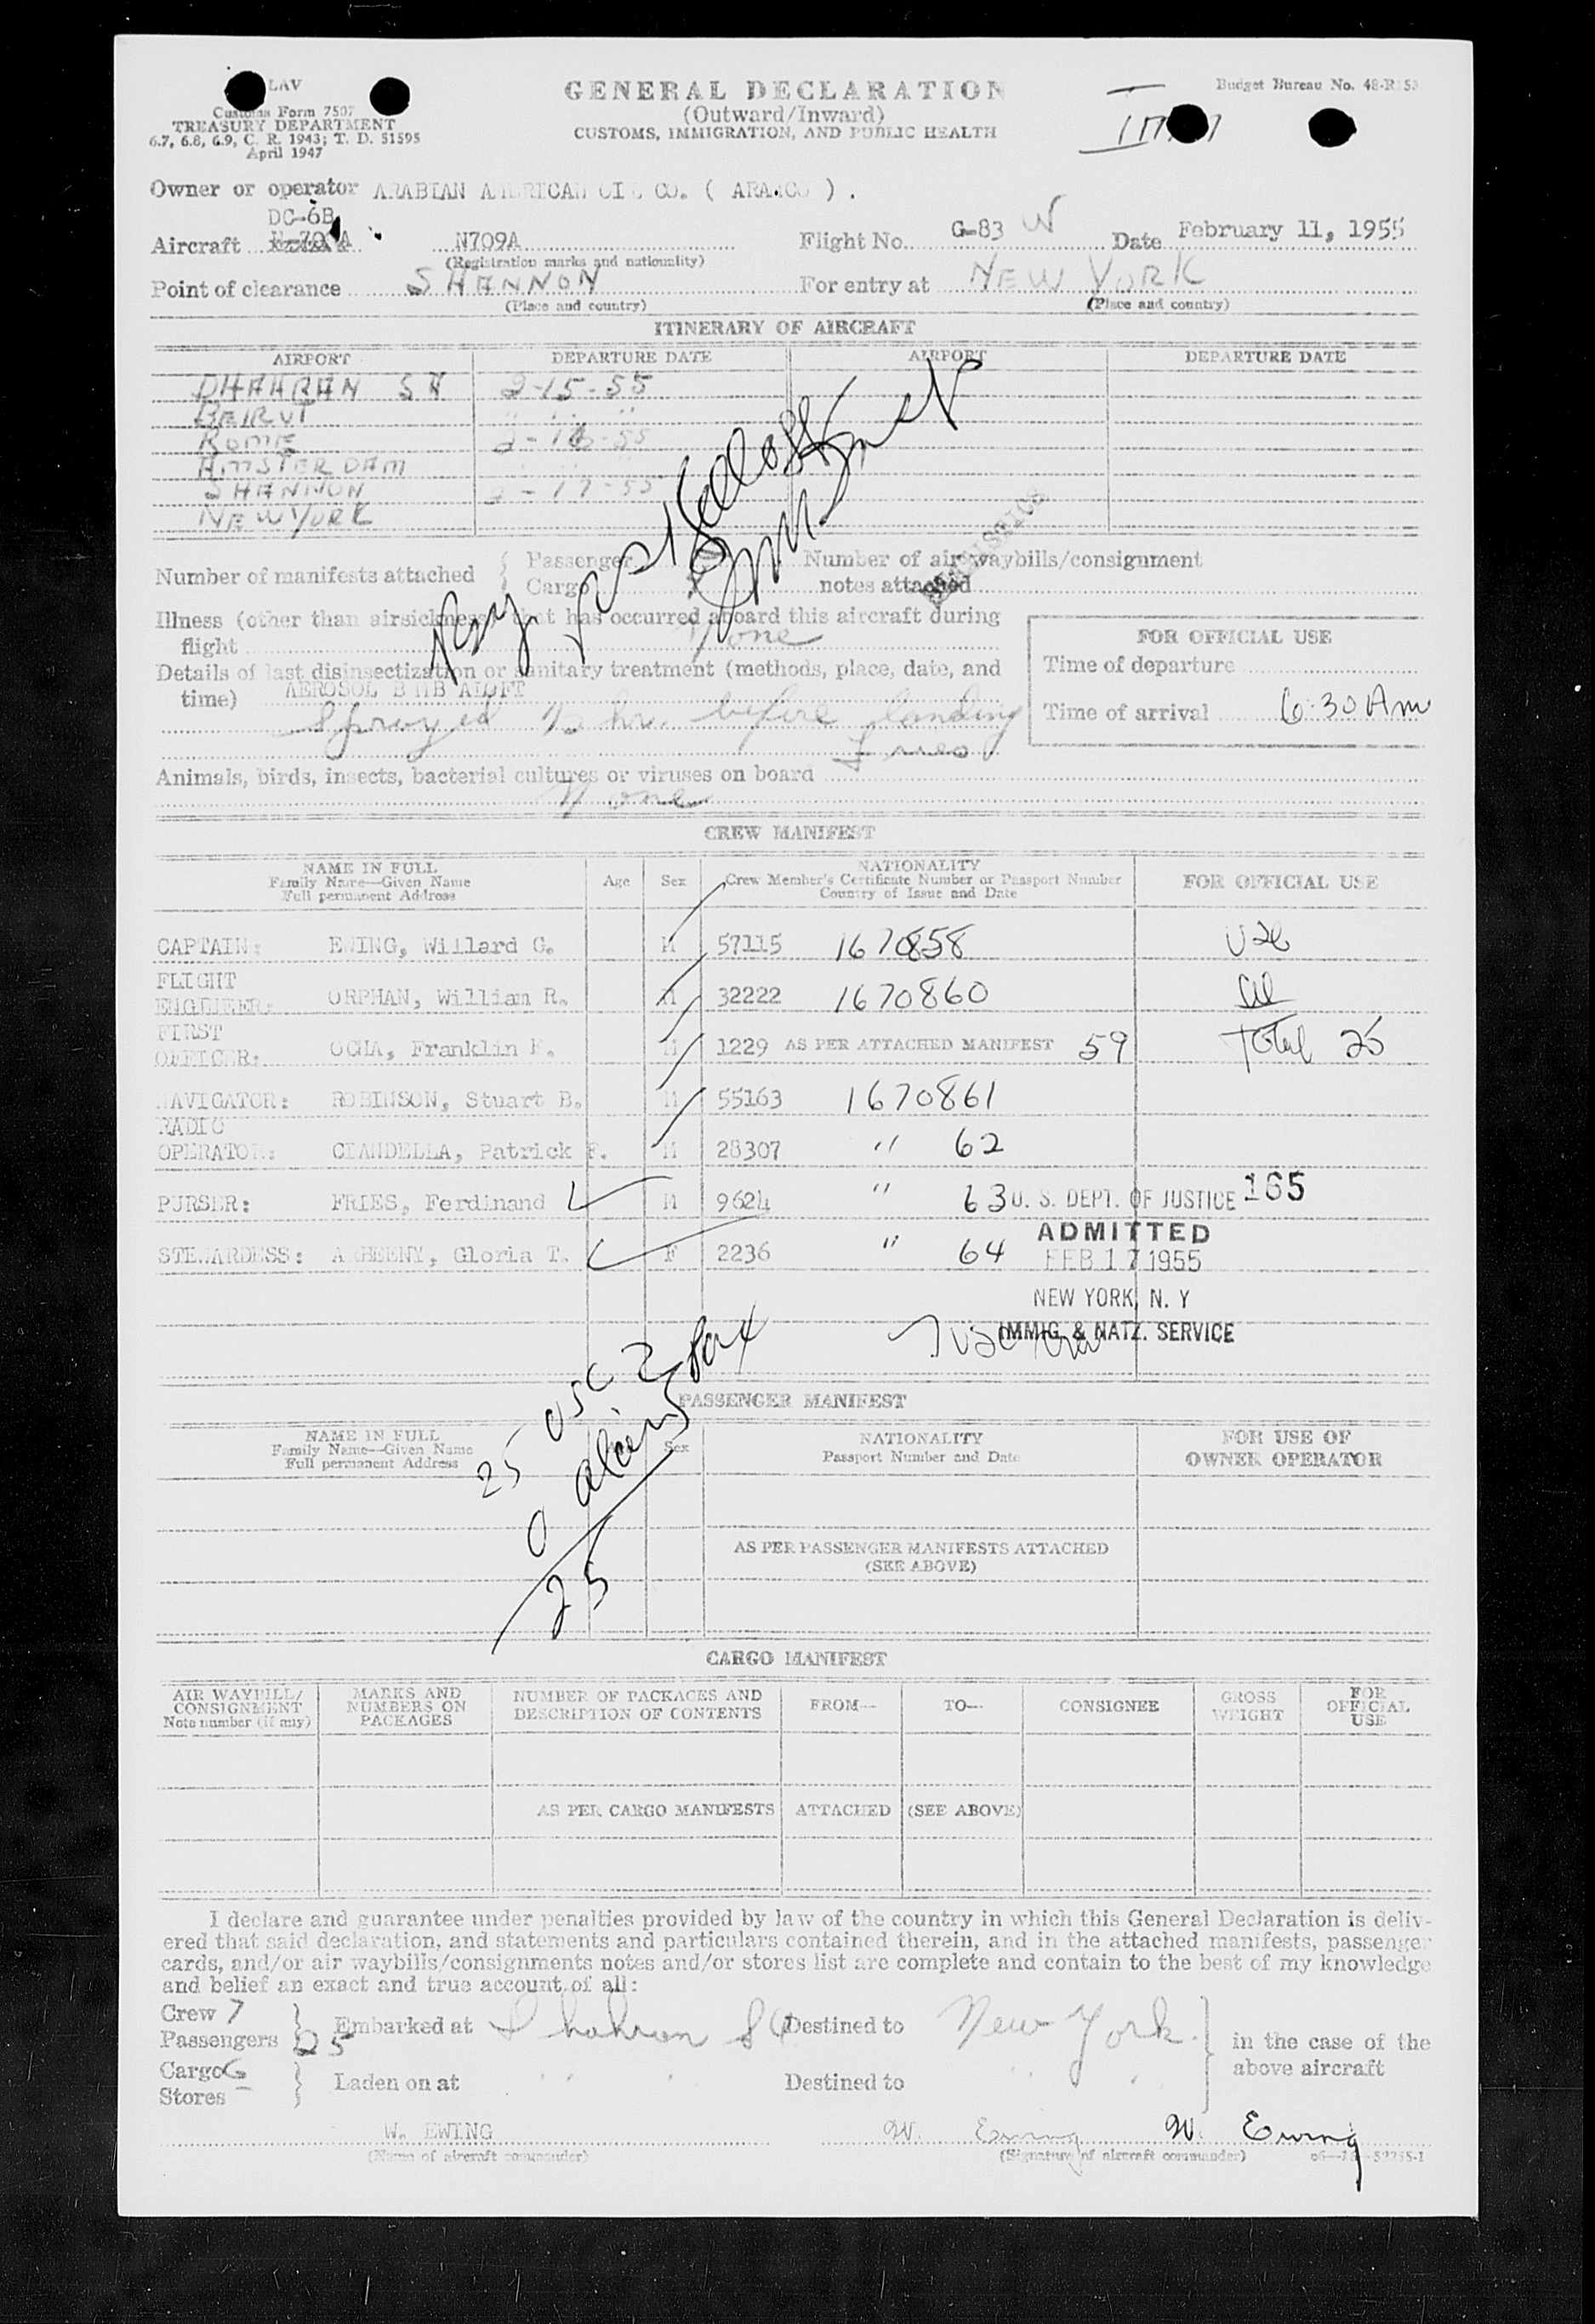 LAV
Customs Form 7507
TREASURY DEPARTMENT
6.7, 6.8, 6.9, C. R. 1943; T. D. 51595
April 1947
GENERAL DECLARATION
(Outward/Inward)
CUSTOMS, IMMIGRATION, AND PUBLIC HEALTH
Budget Bureau No. 48-R153
Owner or operator ARABIAN AMERICAN OIL CO. ( ARAMCO ) .
DC-6B
Aircraft N-709A N709A Flight No. G-83 W Date February 11, 1955
(Registration marks and nationality)
Point of clearance SHANNON For entry at NEW YORK
(Place and country) (Place and country)
ITINERARY OF AIRCRAFT
AIRPORT DEPARTURE DATE AIRPORT DEPARTURE DATE
DHAHRAN SA 2-15-55
BEIRUT " " "
ROME 2-16-55
AMSTERDAM
SHANNON 2-17-55
NEW YORK
Number of manifests attached { Passenger
Cargo
Number of air waybills/consignment
notes attached
Illness (other than airsickness) that has occurred aboard this aircraft during
flight None
Details of last disinsectization or sanitary treatment (methods, place, date, and
time) AEROSOL BMB ALOFT
Sprayed 1/2 hr. before landing
FOR OFFICIAL USE
Time of departure
Time of arrival 6:30 AM
Animals, birds, insects, bacterial cultures or viruses on board
None
CREW MANIFEST
NAME IN FULL
Family Name—Given Name
Full permanent Address
Age Sex
NATIONALITY
Crew Member's Certificate Number or Passport Number
Country of Issue and Date
FOR OFFICIAL USE
CAPTAIN: EWING, Willard G. M 57115 1670858
FLIGHT
ENGINEER: ORPHAN, William R. M 32222 1670860
FIRST
OFFICER: OCHA, Franklin M 1229 AS PER ATTACHED MANIFEST 59 Total 25
NAVIGATOR: ROBINSON, Stuart B. M 55163 1670861
RADIO
OPERATOR: CIANDELLA, Patrick F. M 28307 " 62
PURSER: FRIES, Ferdinand M 9624 " 63
U. S. DEPT. OF JUSTICE 165
ADMITTED
STEWARDESS: Gloria T. F 2236 " 64
FEB 17 1955
NEW YORK, N. Y
IMMIG. & NATZ. SERVICE
7 USC crew
25 USC
0 aliens
25
PASSENGER MANIFEST
NAME IN FULL
Family Name—Given Name
Full permanent Address
Sex
NATIONALITY
Passport Number and Date
FOR USE OF
OWNER OPERATOR
AS PER PASSENGER MANIFESTS ATTACHED
(SEE ABOVE)
CARGO MANIFEST
AIR WAYBILL/
CONSIGNMENT
Note number (if any)
MARKS AND
NUMBERS ON
PACKAGES
NUMBER OF PACKAGES AND
DESCRIPTION OF CONTENTS
FROM—
TO—
CONSIGNEE
GROSS
WEIGHT
FOR
OFFICIAL
USE
AS PER CARGO MANIFESTS ATTACHED (SEE ABOVE)
I declare and guarantee under penalties provided by law of the country in which this General Declaration is deliv-
ered that said declaration, and statements and particulars contained therein, and in the attached manifests, passenger
cards, and/or air waybills/consignments notes and/or stores list are complete and contain to the best of my knowledge
and belief an exact and true account of all:
Crew 7
Passengers 25
Embarked at Dhahran SA Destined to New York
in the case of the
above aircraft
Cargo
Stores
Laden on at " " Destined to " "
W. EWING W. Ewing W. Ewing
(Name of aircraft commander) (Signature of aircraft commander)